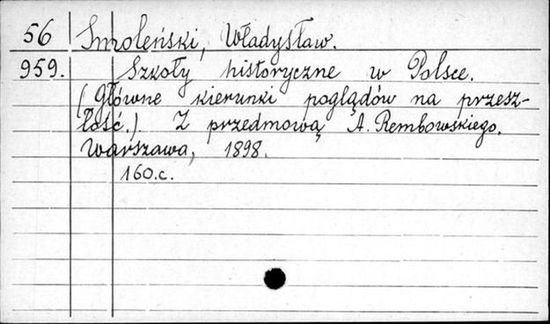 56 Smoleński, Władysław.
959. Szkoły historyczne w Polsce.
(Główne kierunki poglądów na przesz-
łość.). Z przedmową A. Rembowskiego.
Warszawa, 1898.
160.c.